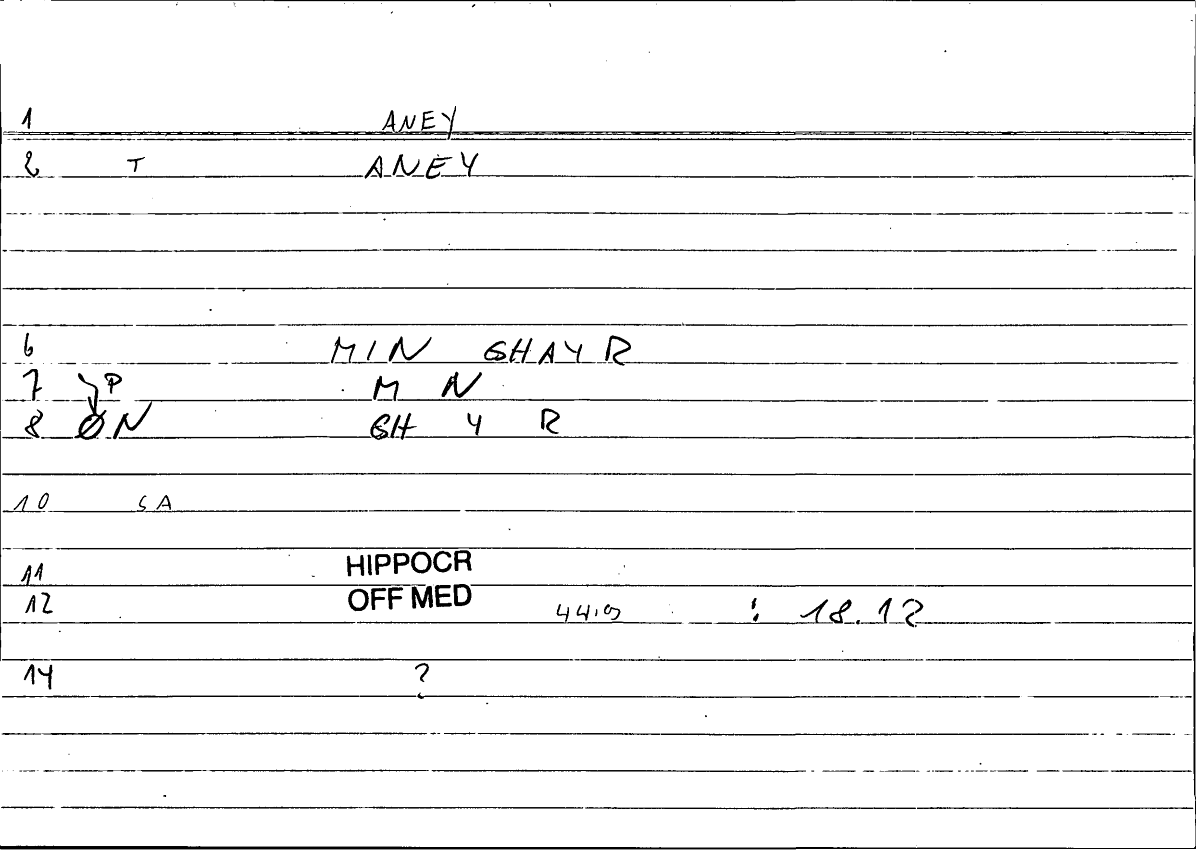 1 ANEY
2 T ANEY
6 MIN GHAYR
7 P M N
8 ØN GH Y R
10 SA
11 HIPPOCR
12 OFF MED : 18.12
14 ?